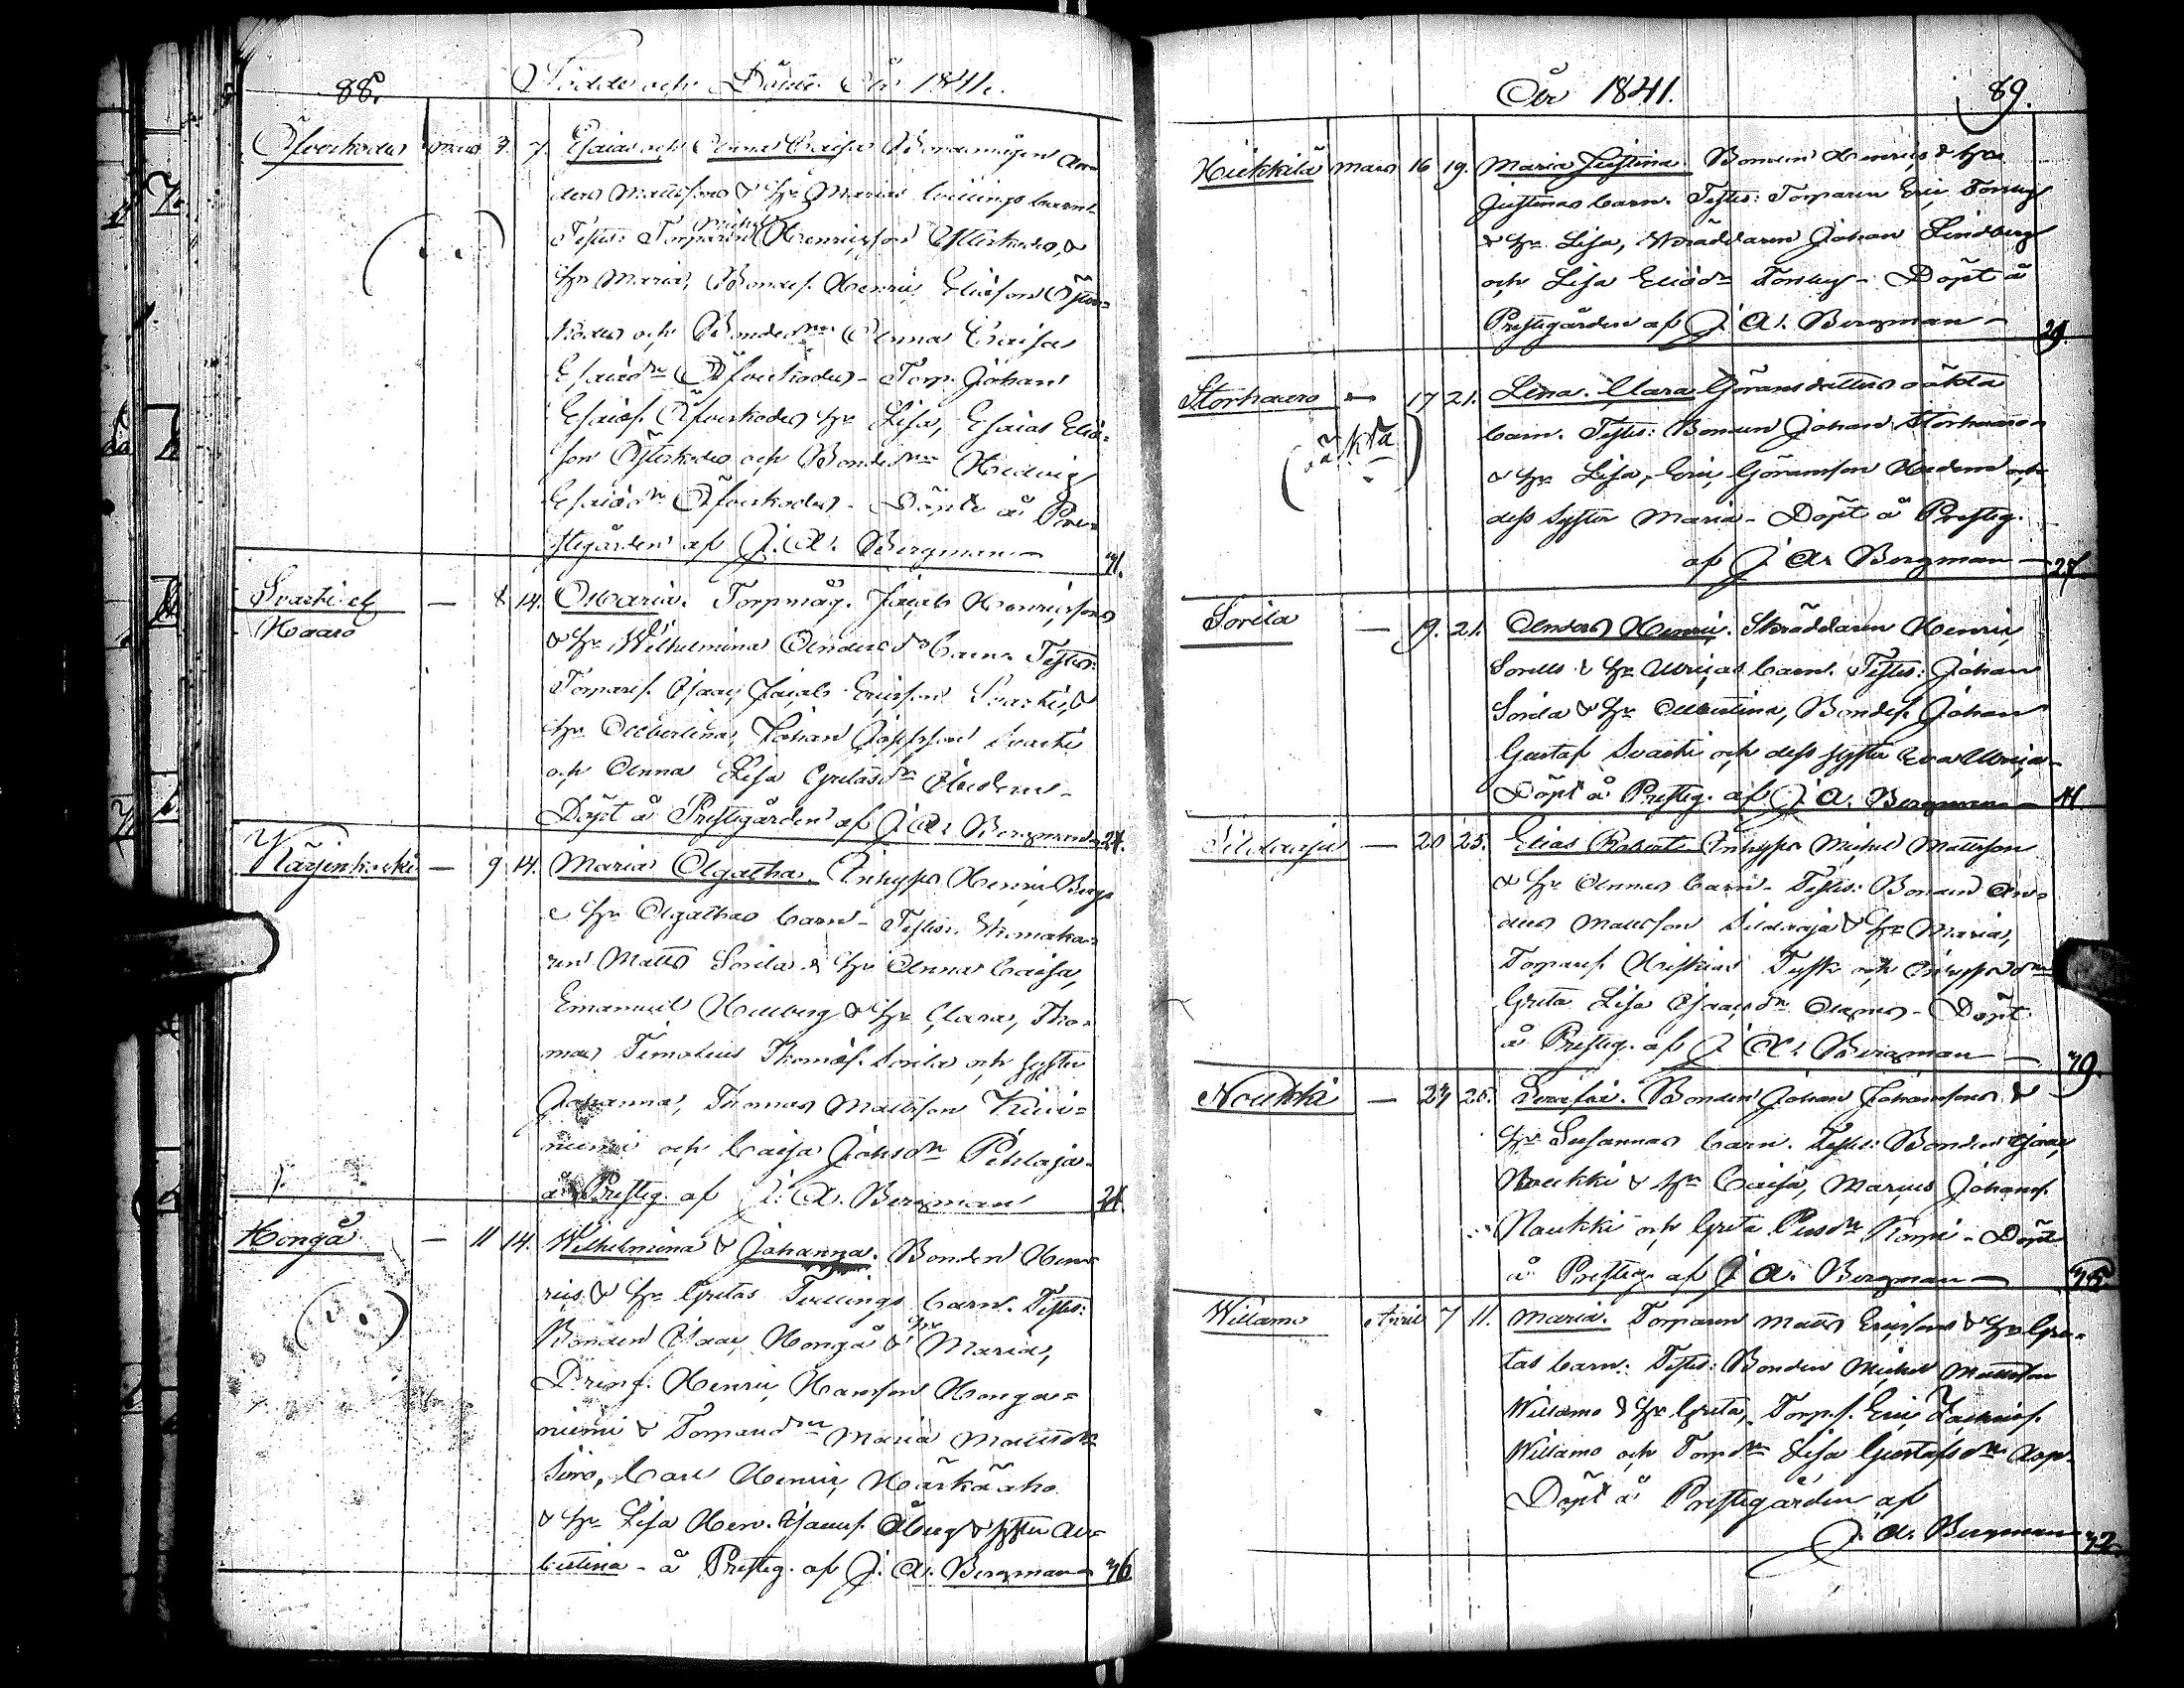 88. Födde och Döpte År 1841.
Öfverkodis Mars 3. 7. Esaias och Anna Caisa Bondemågen An-
ders Mattssons & Hu Marias tvillings barn.
Testes: Torparen Michel Henricsson Ytterkodis, &
Hu Maria, Bondes. Henric Eliæson Öfver-
kodis och Bonded:n Anna Caisa
Esaiæd:r Öfverkodis - Torp. Johan
Esaiæs. Öfverkodis Hu Lisa, Esaias Eliæ-
son Ytterkodis och Bonded:n Hedvig
Esaiæd:r Öfverkodis - Döpte å Pre-
stegården af J. A. Bergman - 31.
Svarti et — 8 14. Maria. Torpmåg. Jacob Henricssons
Haaro
& Hu Wilhelmina Andersd:rs barn. Testes:
Torpares. Isaac Jacob Ericsson Svarti, &
Hu Albertina, Johan Josefsson Svarti
och Anna Lisa Gretasd:r
Döpt å Prestegården af J. A. Bergman 24.
Närjenkoski — 9 14. Maria Agatha. Inhyss Henric Bergs
& Hu Agathas barn - Testes: Skomaka-
ren Matts Sorila & Hu Anna Caisa,
Emanuel Hellberg & Hu Clara, Tho-
mas Timoteus Thomæs. Sorila och syster
Johanna, Thomas Mattsson Kivi-
niemi och Caisa Johsd:r Pihlaja
å Presteg. af J. A. Bergman 24
Hongå — 11 14. Wilhelmina & Johanna. Bonden Hen-
rics & Hu Gretas Tvillings barn. Testes:
Bonden Isaac Hongå & Hu Maria,
Dreng. Henric Hansson Honga-
niemi & Torpared:n Maria Mattsd:r
Siro, Carl Henric Härkäaho
& Hu Lisa Hen. Isacss. Åberg & syster Al-
bertina - å Presteg. af J. A. Bergman 36
År 1841. 89.
Heikkilä Mars 16 19. Maria Justina. Bonden Henrics & Hu
Justinas barn. Testes: Torparen Eric Forsby
& Hu Lisa, Skräddaren Johan Lindberg
och Lisa Eliæd:r Forsby - Döpt å
Prestegården af J. A. Bergman - 29.
Storhaaro — 17 21. Lena Clara Göransdotters oäkta
(oäkta)
barn. Testes: Bonden Johan Storhaaro
& Hu Lisa, Eric Göransson och
dess syster Maria - Döpt å Presteg.
af J. A. Bergman - 27
Sorila — 19. 21. Anders Henric. Skräddaren Henric
Sorells & Hu Ulricas barn. Testes: Johan
Sorila & Hu Albertina, Bondes. Johan
Gustaf Svarti och dess syster Eva Ulrica
Döpt å Presteg. af J. A. Bergman - 41
— 20 25. Elias Robert Inhyss Michel Mattsson
& Hu Annas barn - Testes: Bonden An-
ders Mattsson & Hu Maria,
Torpares. Tysk och Inhyssd:n
Greta Lisa Isaacsd:r - Döpt
å Presteg. af J. A. Bergman — 39.
Noukki — 24 25. Bonden Johan Johansons &
Hu Susannas barn. Testes: Bonden Isaac
Noukki & Hu Caisa, Marius Johans.
Noukki och Greta - Döpt
å Presteg. af J. A. Bergman - 35
Willamo April 7 11. Maria. Torparen Matts Ericsons & Hu Gre-
tas barn: Testes: Bonden Michel Mattsson
Willamo & Hu Greta, Torp.s. Eric Zachriss.
Willamo och Torpd:n Lisa Gustafsd:r
Döpt å Prestegården af
J. A. Bergman 32